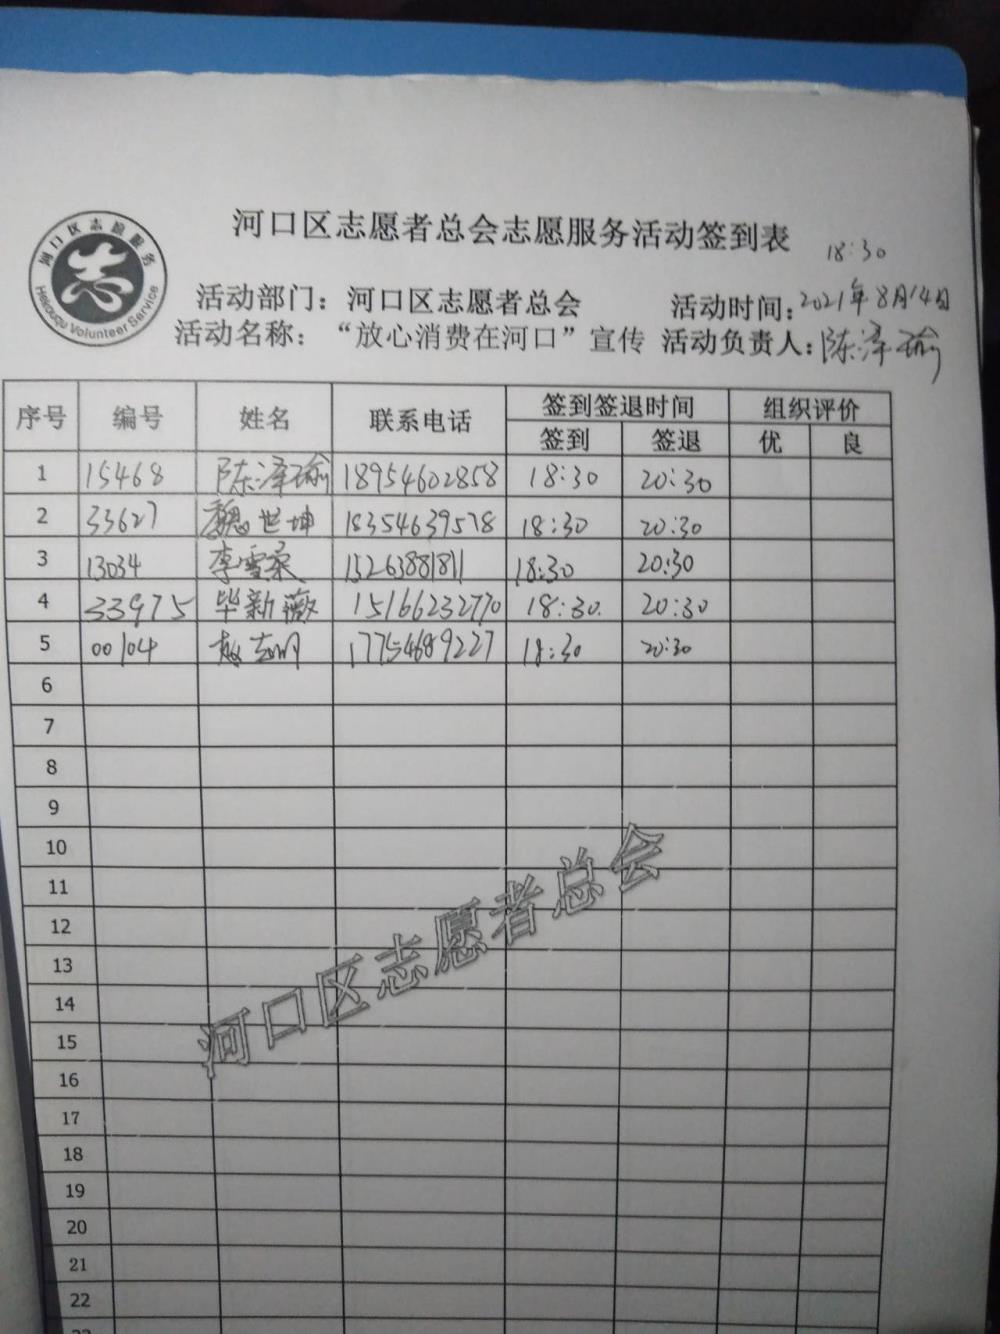 河口区志愿服务
志
Hekouqu Volunteer Service
河口区志愿者总会志愿服务活动签到表
18:30
活动部门：河口区志愿者总会 活动时间：2021年8月14日
活动名称：“放心消费在河口”宣传 活动负责人：陈泽瑜
序号 编号 姓名 联系电话 签到签退时间 组织评价
签到 签退 优 良
1 15468 陈泽瑜 18954602858 18:30 20:30
2 33627 魏世坤 18354639578 18:30 20:30
3 13034 李雪柔 15263881811 18:30 20:30
4 33975 毕新薇 15166232770 18:30. 20:30
5 00104 赵志明 17754689227 18:30 20:30
6
7
8
9
10
11
12
13
14
15
16
17
18
19
20
21
22
河口区志愿者总会